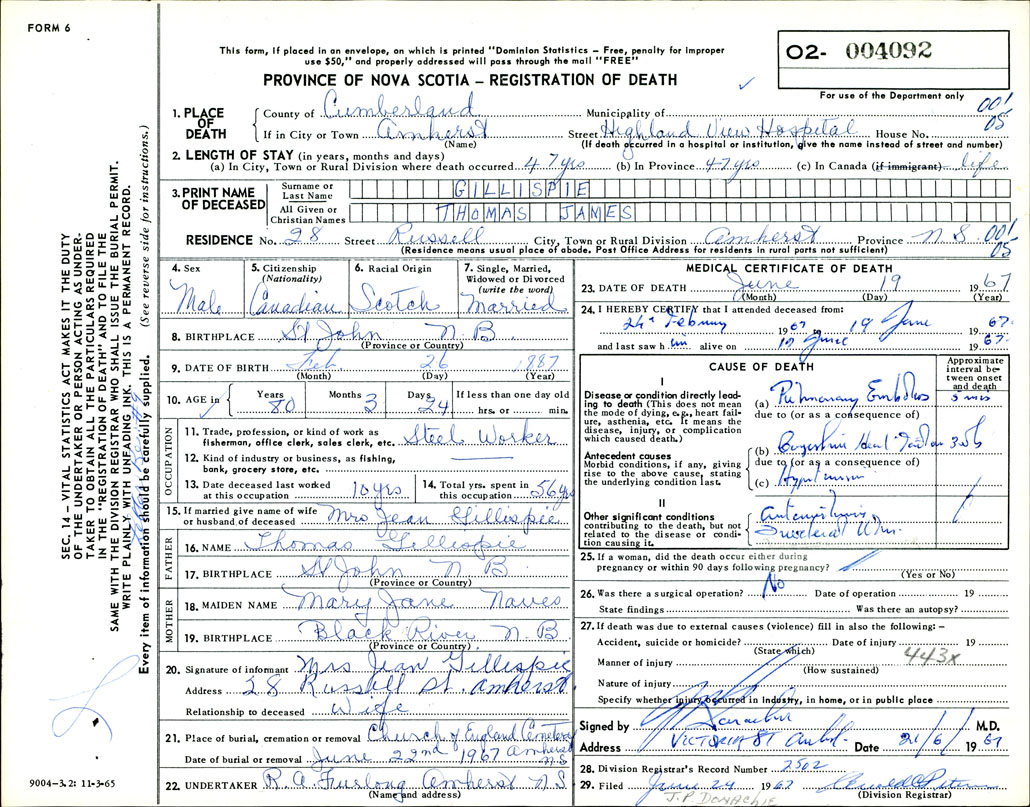 FORM 6
This form, if placed in an envelope, on which is printed "Dominion Statistics – Free, penalty for improper
use $50," and properly addressed will pass through the mail "FREE"
PROVINCE OF NOVA SCOTIA – REGISTRATION OF DEATH
02- 004092
For use of the Department only
SEC. 14 – VITAL STATISTICS ACT MAKES IT THE DUTY
OF THE UNDERTAKER OR PERSON ACTING AS UNDER-
TAKER TO OBTAIN ALL THE PARTICULARS REQUIRED
IN THE "REGISTRATION OF DEATH" AND TO FILE THE
SAME WITH THE DIVISION REGISTRAR WHO SHALL ISSUE THE BURIAL PERMIT.
WRITE PLAINLY WITH UNFADING INK. THIS IS A PERMANENT RECORD.
Every item of information should be carefully supplied. (See reverse side for instructions.)
1. PLACE OF DEATH
County of Cumberland Municipality of 001
If in City or Town Amherst Street Highland View Hospital House No. 05
(Name) (If death occurred in a hospital or institution, give the name instead of street and number)
2. LENGTH OF STAY (in years, months and days)
(a) In City, Town or Rural Division where death occurred 47 yrs (b) In Province 47 yrs (c) In Canada (if immigrant) life
3. PRINT NAME OF DECEASED
Surname or Last Name GILLISPIE
All Given or Christian Names THOMAS JAMES
RESIDENCE No. 28 Street Russell City, Town or Rural Division Amherst Province N.S. 001
05
(Residence means usual place of abode. Post Office Address for residents in rural parts not sufficient)
4. Sex Male
5. Citizenship (Nationality) Canadian
6. Racial Origin Scotch
7. Single, Married, Widowed or Divorced (write the word) Married
8. BIRTHPLACE St John N.B
(Province or Country)
9. DATE OF BIRTH Feb. 26 1887
(Month) (Day) (Year)
10. AGE in Years 80 Months 3 Days 24 If less than one day old hrs. or min.
OCCUPATION
11. Trade, profession, or kind of work as fisherman, office clerk, sales clerk, etc. Steel Worker
12. Kind of industry or business, as fishing, bank, grocery store, etc.
13. Date deceased last worked at this occupation 10 yrs
14. Total yrs. spent in this occupation 56 yrs
15. If married give name of wife or husband of deceased Mrs Jean Gillispie
FATHER
16. NAME Thomas Gillispie
17. BIRTHPLACE St John N B
(Province or Country)
MOTHER
18. MAIDEN NAME Mary Jane Naves
19. BIRTHPLACE Black River N.B
(Province or Country)
20. Signature of informant Mrs Jean Gillispie
Address 28 Russell St. Amherst
Relationship to deceased Wife
21. Place of burial, cremation or removal Church of England Cemetery
Date of burial or removal June 22nd 1967 Amherst N.S
22. UNDERTAKER R.A. Furlong Amherst N.S.
(Name and address)
9004-3.2: 11-3-65
MEDICAL CERTIFICATE OF DEATH
23. DATE OF DEATH June 19 1967
(Month) (Day) (Year)
24. I HEREBY CERTIFY that I attended deceased from:
24 February 1967 to 19 June 1967
and last saw h im alive on 19 June 1967
CAUSE OF DEATH
Approximate interval between onset and death
I
Disease or condition directly leading to death (This does not mean the mode of dying, e.g., heart failure, asthenia, etc. It means the disease, injury, or complication which caused death.)
(a) Pulmonary Embolus 5 mins
due to (or as a consequence of)
Antecedent causes
Morbid conditions, if any, giving rise to the above cause, stating the underlying condition last.
(b) Congestive Heart Failure
due to (or as a consequence of)
(c) Hypertension
II
Other significant conditions contributing to the death, but not related to the disease or condition causing it.
25. If a woman, did the death occur either during pregnancy or within 90 days following pregnancy?
(Yes or No)
26. Was there a surgical operation? No Date of operation 19
State findings Was there an autopsy?
27. If death was due to external causes (violence) fill in also the following: –
Accident, suicide or homicide? Date of injury 19
(State which) 443x
Manner of injury
(How sustained)
Nature of injury
Specify whether injury occurred in industry, in home, or in public place
Signed by M.D.
Address VICTORIA ST Date 21/6/ 1967
28. Division Registrar's Record Number 2502
29. Filed June 24 1967
(Division Registrar)
J.P. DONACHIE